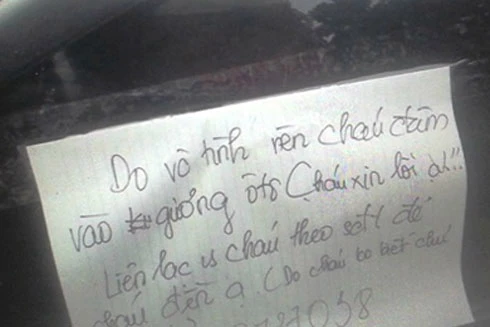 Do vô tình nên cháu đâm
vào gương ôtô Cháu xin lỗi ạ!!
Liên lạc vs cháu theo sđt để
cháu đền ạ. (Do cháu ko biết chú
37038